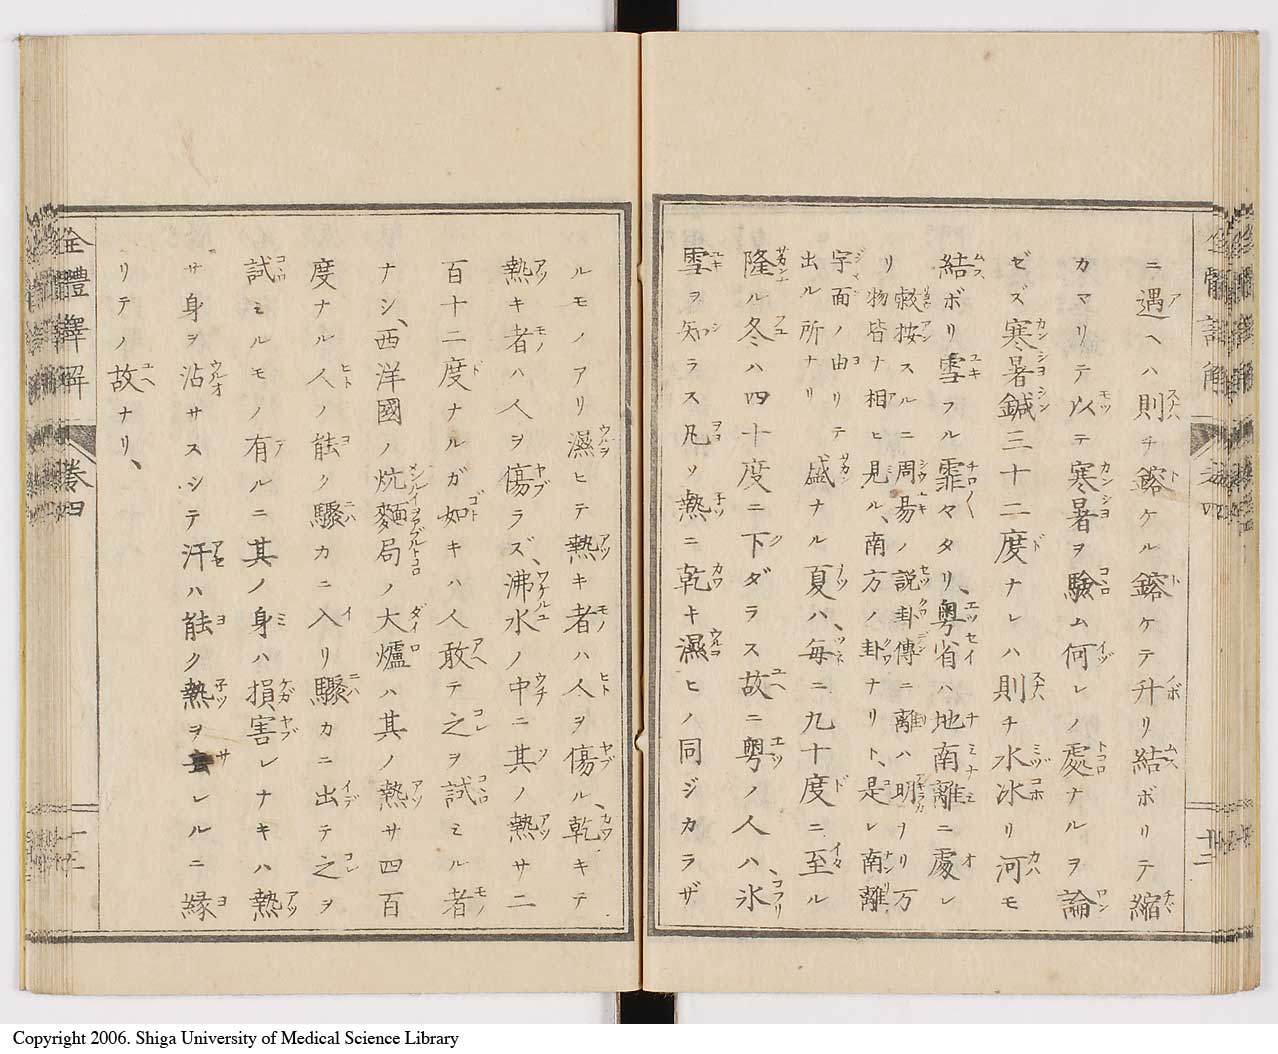 ニ遇ヘハ則チ鎔ケル鎔ケテ升リ結ボリテ縮
カマリテ以テ寒暑ヲ驗ム何レノ處ナルヲ論
ゼズ寒暑鍼三十二度ナレハ則チ水冰リ河モ
結ボリ雪フル霏々タリ、粤省ハ地南離ニ處レ
リ
敍按スルニ周易ノ説卦傳ニ離ハ明ヲリ万
物皆ナ相ヒ見ル、南方ノ卦ナリト、是レ南離
字面ノ由リテ
出ル所ナリ
盛ナル夏ハ、毎ニ九十度ニ至ル
隆ル冬ハ四十度ニ下ダラス故ニ粤ノ人ハ、氷
雪ヲ知ラス凡ソ熱ニ乾キ濕ヒノ同ジカラザ
ルモノアリ濕ヒテ熱キ者ハ人ヲ傷ル、乾キテ
熱キ者ハ人ヲ傷ラズ、沸水ノ中ニ其ノ熱サ二
百十二度ナルガ如キハ人敢テ之ヲ試ミル者
ナシ、西洋國ノ炕麵局ノ大爐ハ其ノ熱サ四百
度ナル人ノ能ク驟カニ入リ驟カニ出テ之ヲ
試ミルモノ有ルニ其ノ身ハ損害レナキハ熱
サ身ヲ沾サスシテ汗ハ能ク熱ヲ去レルニ縁
リテノ故ナリ、
全體譯解 卷四
十二
Copyright 2006. Shiga University of Medical Science Library